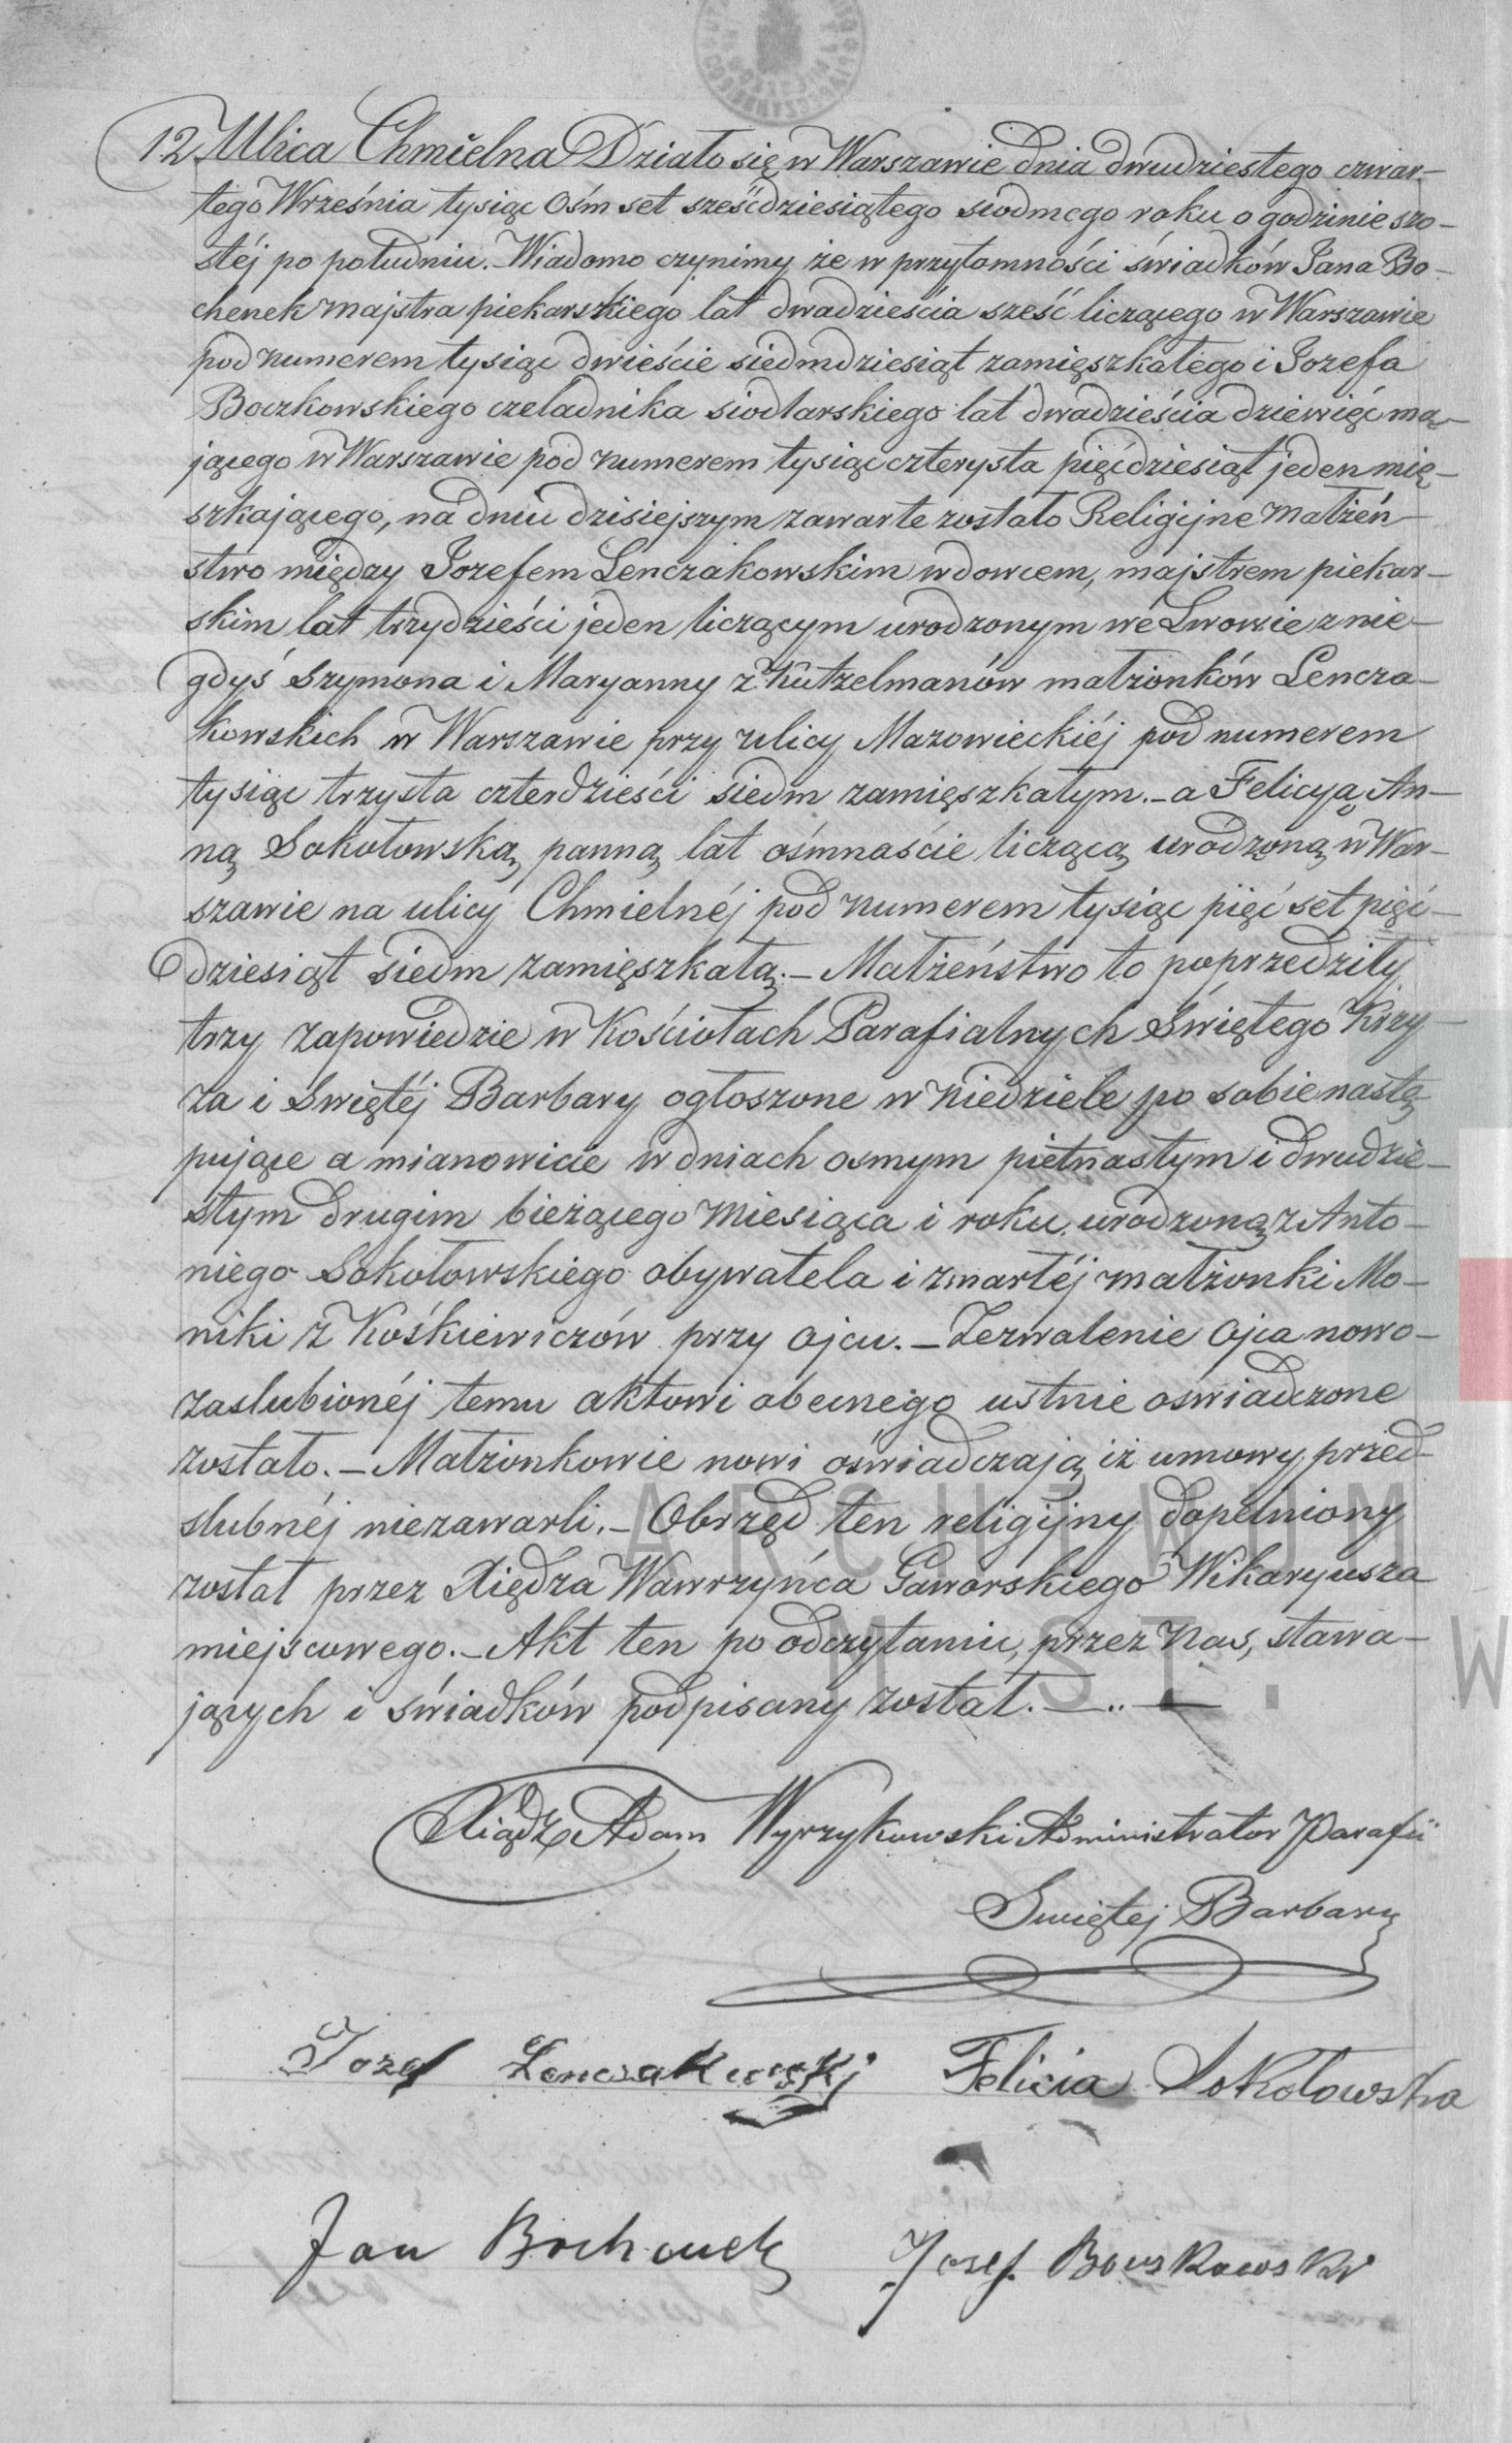 12 Ulica Chmielna Działo się w Warszawie dnia dwudziestego czwar-
tego Września tysiąc ośm set sześćdziesiątego siodmego roku o godzinie szo-
stéj po południu. Wiadomo czynimy że w przytomności świadków Jana Bo-
chenek majstra piekarskiego lat dwadzieścia sześć liczącego w Warszawie
pod numerem tysiąc dwieście siedmdziesiąt zamięszkałego i Jozefa
Boczkowskiego czeladnika siodlarskiego lat dwadzieścia dziewięć ma-
jącego w Warszawie pod numerem tysiąc czterysta pięćdziesiąt jeden mię-
szkającego, na dniu dzisiejszym zawarte zostało Religijne małżeń-
stwo między Jozefem Lenczakowskim wdowcem, majstrem piekar-
skim lat trzydzieści jeden liczącym urodzonym we Lwowie z nie-
gdyś Szymona i Maryanny z Kutzelmanów małżonków Lencza-
kowskich w Warszawie przy ulicy Mazowieckiéj pod numerem
tysiąc trzysta czterdzieści siedm zamięszkałym. - a Felicyą An-
ną Sokołowską panną lat ośmnaście liczącą urodzoną w War-
szawie na ulicy Chmielnéj pod numerem tysiąc pięć set pięć-
dziesiąt siedm zamięszkałą. - Małżeństwo to poprzedziły
trzy zapowiedzie w Kościołach Parafialnych Świętego Krzy-
ża i Świętéj Barbary ogłoszone w niedziele po sobie nastę-
pujące a mianowicie w dniach osmym piętnastym i dwudzie-
stym drugim bieżącego miesiąca i roku. urodzoną z Anto-
niego Sokołowskiego obywatela i zmarłéj małżonki Mo-
niki z Kośkiewiczów przy ojcu. - Zezwolenie Ojca nowo-
zaslubionéj temu aktowi obecnego ustnie oswiadczone
zostało. - Małżonkowie nowi oświadczają iż umowy przed-
slubnéj niezawarli. - Obrzęd ten religijny dopełniony
został przez Xiędza Wawrzyńca Gaworskiego Wikaryusza
miejscowego. - Akt ten po odczytaniu, przez Nas, stawa-
jących i świadków podpisany został. - .. -
Xiądz Adam Wyrzykowski Administrator Parafii
Swiętej Barbary
Jozef Lenczakowski Felicia Sokołowska
Jan Bochenek Josef Bouskowski
ARCHIWUM
M. ST. W